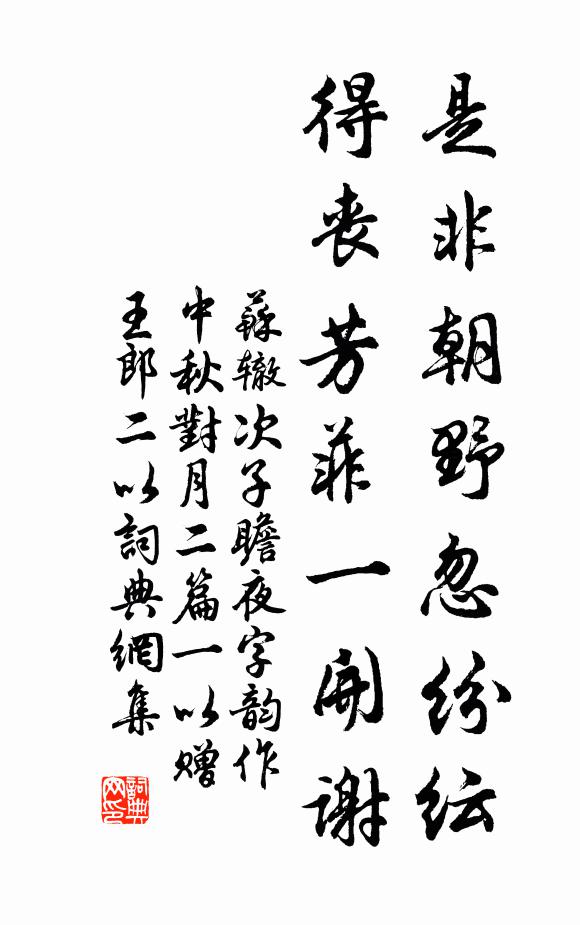 是非朝野忽紛紜
得喪芳菲一開謝
蘇辙次子瞻夜字韵作
中秋對月二篇一以贈
王郎二以詞典網集
詞典网印